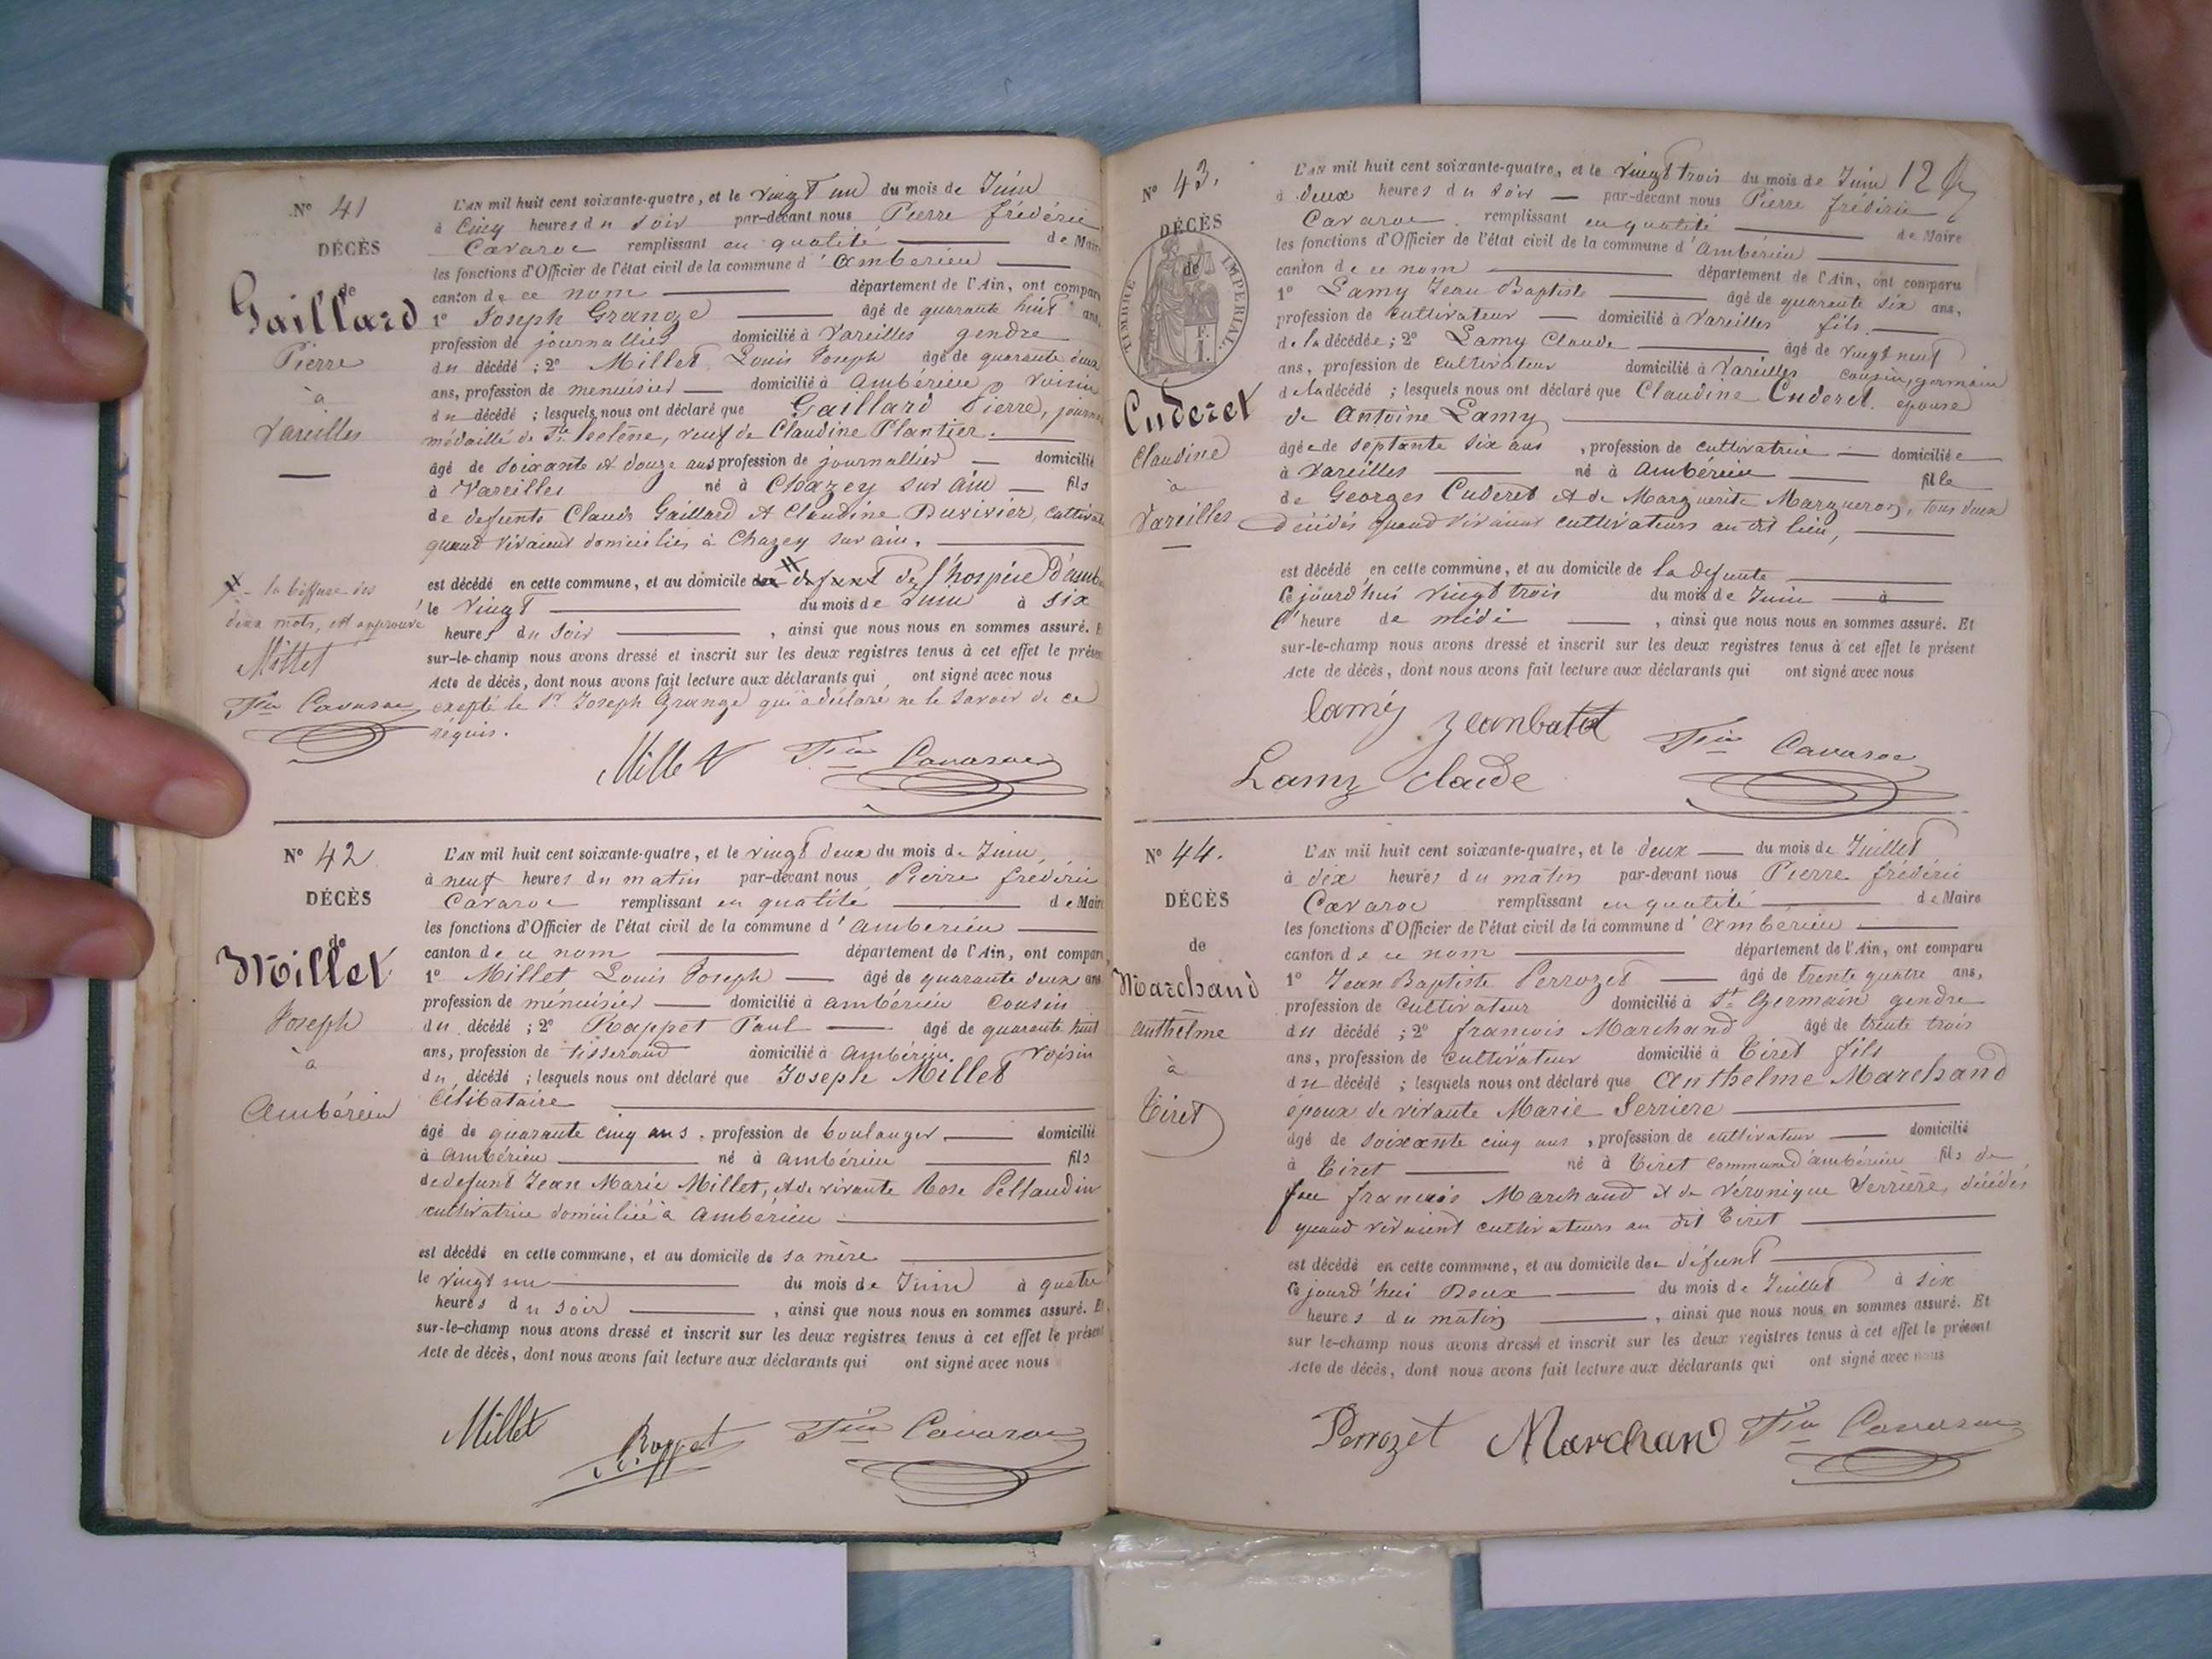 N° 41
DÉCÈS
de
Gaillard
Pierre
à
Vareilles
L'AN mil huit cent soixante-quatre, et le vingt un du mois de Juin
à Cinq heures du Soir par-devant nous Pierre frédéric
Cavaroc remplissant en qualité de Maire
les fonctions d'Officier de l'état civil de la commune d'Ambérieu
canton de ce nom département de l'Ain, ont comparu
1° Joseph Grange âgé de quarante huit ans,
profession de journallier domicilié à Vareilles gendre
du décédé ; 2° Millet Louis Joseph âgé de quarante deux
ans, profession de menuisier domicilié à Ambérieu voisin
du décédé ; lesquels nous ont déclaré que Gaillard Pierre,
médaillé de Ste helène, veuf de Claudine Plantier.
âgé de soixante et douze ans profession de journallier domicilié
à Vareilles né à Chazey sur ain fils
de defunts Claude Gaillard et Claudine Duvivier,
quand vivaient domiciliés à Chazey sur ain.
est décédé en cette commune, et au domicile du defunt de l'hospice
le vingt du mois de Juin à six
heures du soir , ainsi que nous nous en sommes assuré. Et
sur-le-champ nous avons dressé et inscrit sur les deux registres tenus à cet effet le présent
Acte de décès, dont nous avons fait lecture aux déclarants qui ont signé avec nous
excepté le Sr Joseph Grange qui a déclaré ne le savoir de ce
réquis.
la biffure des
deux mots, est approuvé
Millet
Fric Cavaroc
Millet Fric Cavaroc
N° 42
DÉCÈS
de
Millet
Joseph
à
Ambérieu
L'AN mil huit cent soixante-quatre, et le vingt deux du mois de Juin,
à neuf heures du matin par-devant nous Pierre frédéric
Cavaroc remplissant en qualité de Maire
les fonctions d'Officier de l'état civil de la commune d'Ambérieu
canton de ce nom département de l'Ain, ont comparu
1° Millet Louis Joseph âgé de quarante deux ans
profession de menuisier domicilié à Ambérieu Cousin
du décédé ; 2° Rappet Paul âgé de quarante huit
ans, profession de tisserand domicilié à Ambérieu voisin
du décédé ; lesquels nous ont déclaré que Joseph Millet
Célibataire
âgé de quarante cinq ans, profession de boulanger domicilié
à Ambérieu né à Ambérieu fils
de defunt Jean Marie Millet, et de vivante Rose Pellaudin
cultivatrice domiciliée à Ambérieu
est décédé en cette commune, et au domicile de sa mère
le vingt un du mois de Juin à quatre
heures du soir , ainsi que nous nous en sommes assuré. Et
sur-le-champ nous avons dressé et inscrit sur les deux registres tenus à cet effet le présent
Acte de décès, dont nous avons fait lecture aux déclarants qui ont signé avec nous
Millet Rappet Fric Cavaroc
N° 43.
DÉCÈS
de
TIMBRE IMPERIAL
Cuderet
Claudine
à
Vareilles
12
L'AN mil huit cent soixante-quatre, et le vingt trois du mois de Juin
à deux heures du soir par-devant nous Pierre frédéric
Cavaroc remplissant en qualité de Maire
les fonctions d'Officier de l'état civil de la commune d'Ambérieu
canton de ce nom département de l'Ain, ont comparu
1° Lamy Jean Baptiste âgé de quarante six ans,
profession de cultivateur domicilié à Vareilles fils
de la décédée ; 2° Lamy Claude âgé de vingt neuf
ans, profession de cultivateur domicilié à Vareilles cousin germain
de la décédé ; lesquels nous ont déclaré que Claudine Cuderet épouse
de Antoine Lamy
âgée de septante six ans , profession de cultivatrice domiciliée
à Vareilles né à Ambérieu fille
de Georges Cuderet et de Marguerite Margueron, tous deux
décédés quand vivaient cultivateurs au dit lieu,
est décédé en cette commune, et au domicile de la defunte
Ce jourd'hui vingt trois du mois de Juin à
l'heure de midi , ainsi que nous nous en sommes assuré. Et
sur-le-champ nous avons dressé et inscrit sur les deux registres tenus à cet effet le présent
Acte de décès, dont nous avons fait lecture aux déclarants qui ont signé avec nous
lamy Jeanbatit Fric Cavaroc
Lamy Claude
N° 44.
DÉCÈS
de
Marchand
Anthelme
à
Tiret
L'AN mil huit cent soixante-quatre, et le deux du mois de Juillet
à dix heures du matin par-devant nous Pierre frédéric
Cavaroc remplissant en qualité de Maire
les fonctions d'Officier de l'état civil de la commune d'Ambérieu
canton de ce nom département de l'Ain, ont comparu
1° Jean Baptiste Perrozet âgé de trente quatre ans,
profession de Cultivateur domicilié à St Germain gendre
du décédé ; 2° francois Marchand âgé de trente trois
ans, profession de cultivateur domicilié à Tiret fils
du décédé ; lesquels nous ont déclaré que Anthelme Marchand
époux de vivante Marie Serriere
âgé de soixante cinq ans , profession de cultivateur domicilié
à Tiret né à Tiret commune d'ambérieu fils de
feu francois Marchand et de Véronique Serrière, décédés
quand vivaient cultivateurs au dit Tiret
est décédé en cette commune, et au domicile du défunt
Ce jourd'hui Deux du mois de Juillet à six
heures du matin , ainsi que nous nous en sommes assuré. Et
sur le-champ nous avons dressé et inscrit sur les deux registres tenus à cet effet le présent
Acte de décès, dont nous avons fait lecture aux déclarants qui ont signé avec nous
Perrozet Marchand Fric Cavaroc